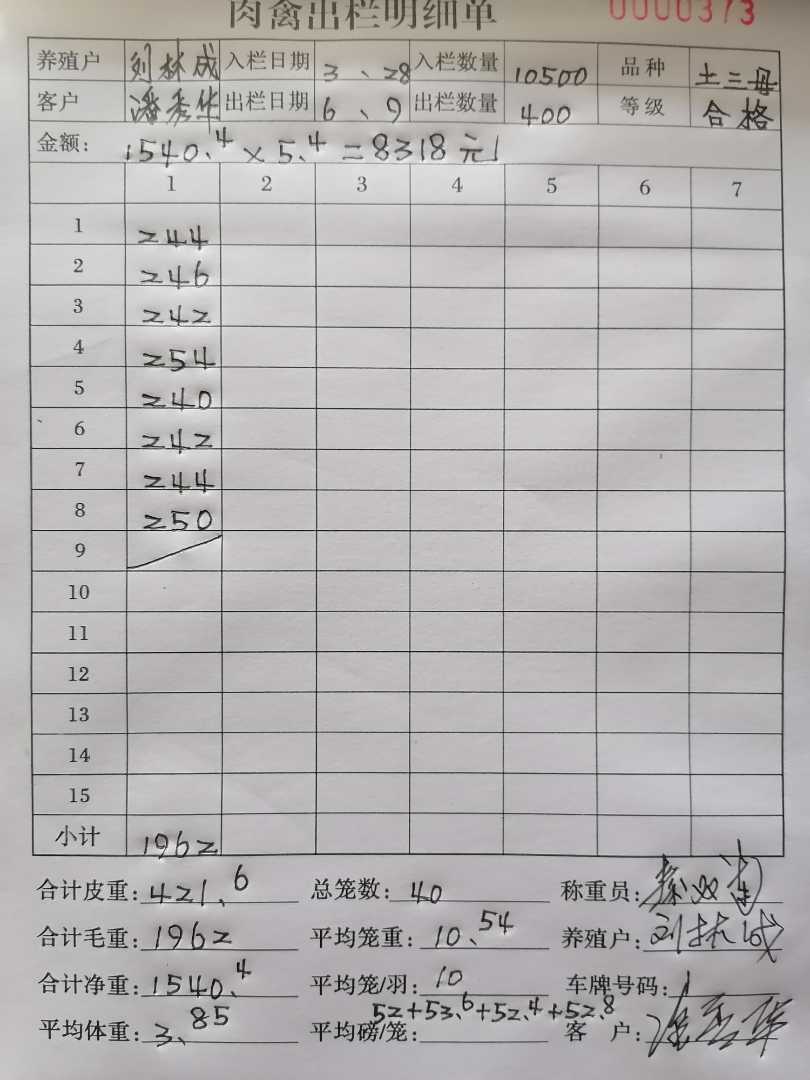 肉禽出栏明细单 0000373
养殖户 刘林成 入栏日期 3、28 入栏数量 10500 品种 土三母
客户 潘秀华 出栏日期 6、9 出栏数量 400 等级 合格
金额: 1540.4×5.4=8318元
1 2 3 4 5 6 7
1 244
2 246
3 242
4 254
5 240
6 242
7 244
8 250
9
10
11
12
13
14
15
小计 1962
合计皮重: 421.6 总笼数: 40 称重员:
合计毛重: 1962 平均笼重: 10.54 养殖户: 刘林成
合计净重: 1540.4 平均笼/羽: 10 车牌号码:
平均体重: 3.85 平均磅/笼: 52+53.6+52.4+52.8 客 户: 潘秀华